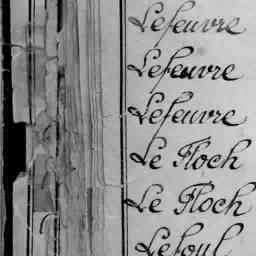 Lefeuvre
Lefeuvre
Lefeuvre
Le Floch
Le Floch
Lefoul